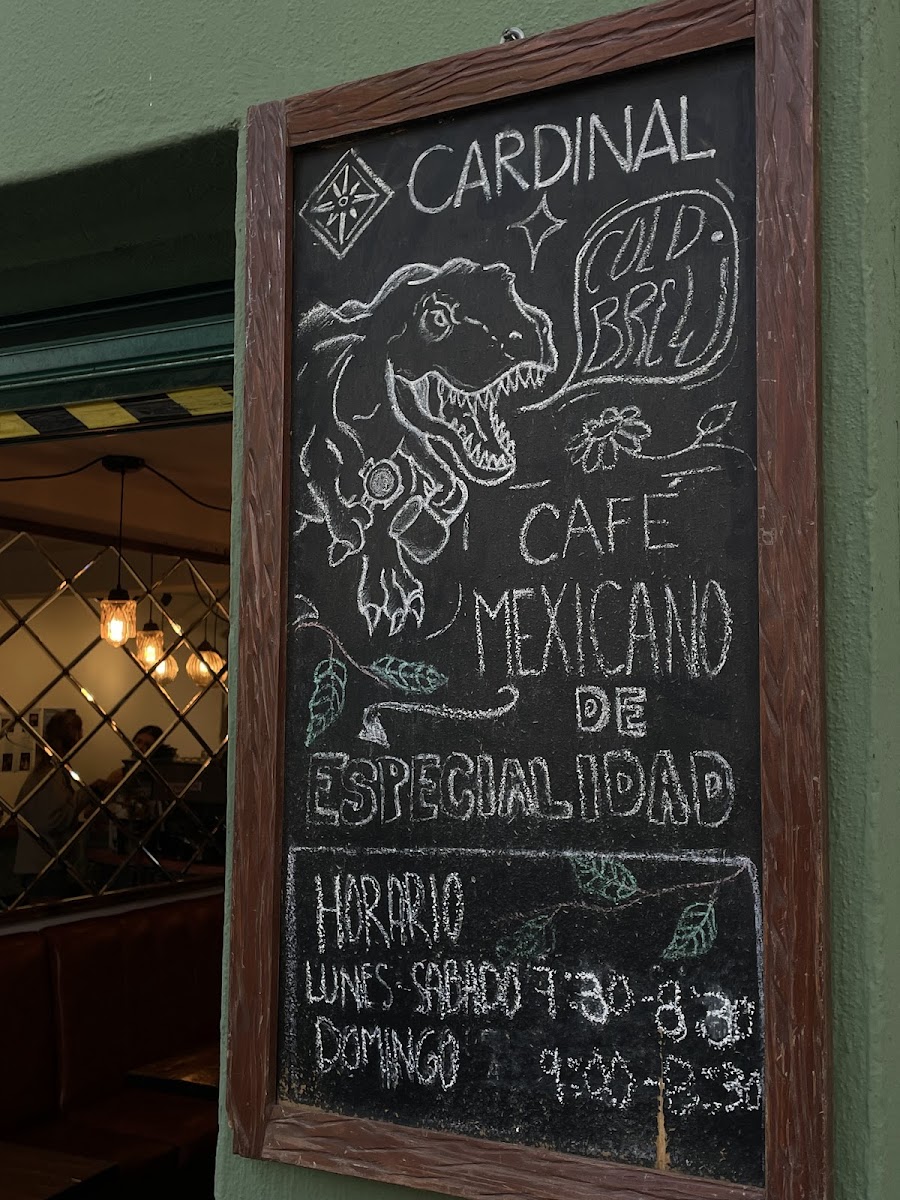 CARDINAL
COLD
BREW
CAFÉ
MEXICANO
DE
ESPECIALIDAD
HORARIO
LUNES-SABADO 7:30-8:30
DOMINGO 9:00-8:30